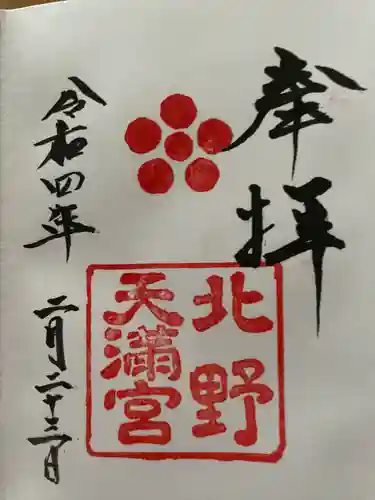 奉拝
北野
天満宮
令和四年
二月二十三日